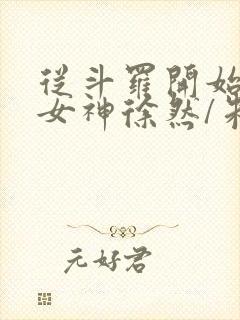 從斗羅開始
女神徐然/朱
元好君